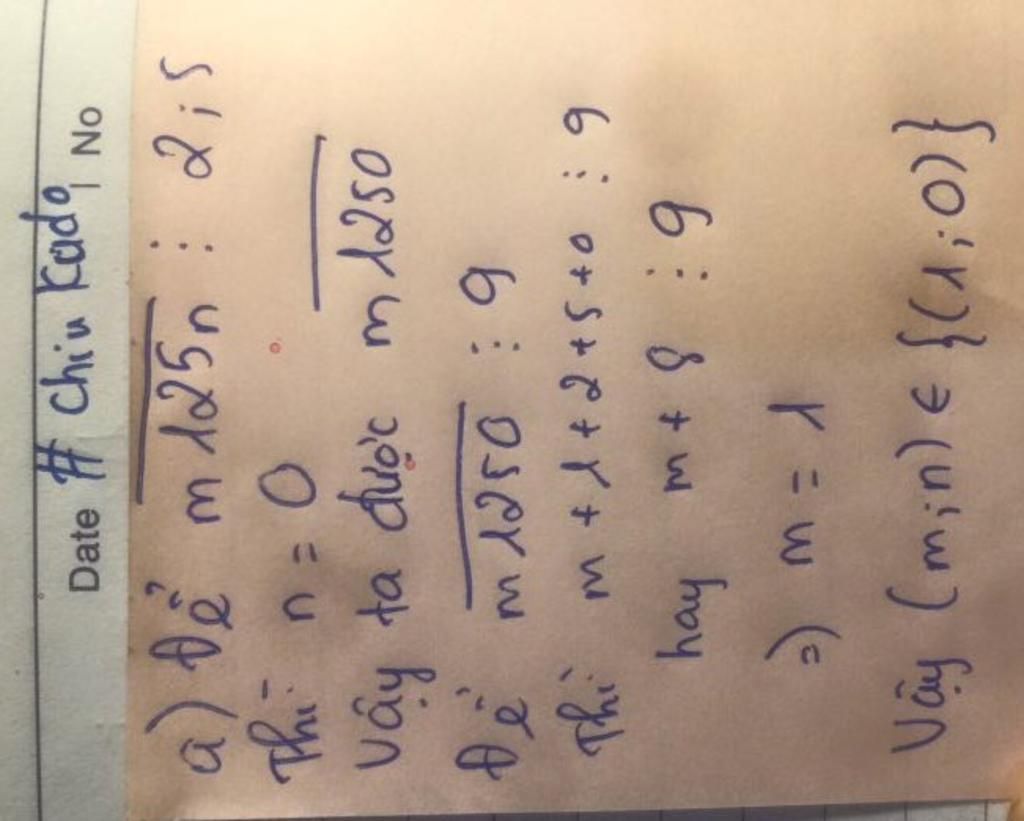 Date # Chiu Kadoꞌ | No
a) Để m125n ⋮ 2;5
Thì n = 0
Vậy ta được m1250
Để m1250 ⋮ 9
Thì m + 1 + 2 + 5 + 0 ⋮ 9
hay m + 8 ⋮ 9
=) m = 1
Vậy (m;n) ∈ {(1;0)}